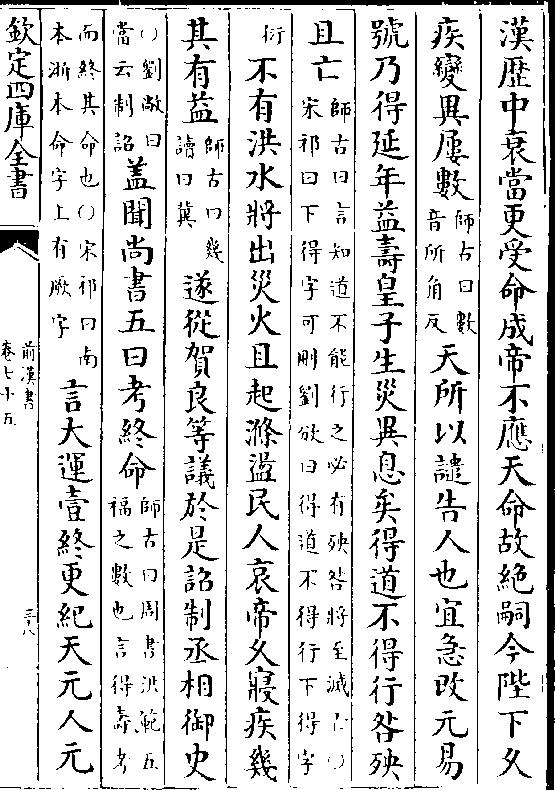 漢歴中衰當更受命成帝不應天命故絶嗣今陛下久
疾變異屢數師古曰數音所角反天所以譴告人也宜急改元易
號乃得延年益壽皇子生災異息矣得道不得行咎殃
且亡師古曰言知道不能行之必有殃咎將至滅亡〇宋祁曰下得字可刪劉攽曰得道不得行下得字
衍不有洪水將出災火且起滌盪民人哀帝久寢疾幾
其有益師古曰幾讀曰冀遂從賀良等議於是詔制丞相御史
〇劉敞曰當云制詔蓋聞尚書五曰考終命師古曰周書洪範五福之數也言得壽考
而終其命也〇宋祁曰南本浙本命字上有厥字言大運壹終更紀天元人元
欽定四庫全書
前漢書
卷七十五
三十八